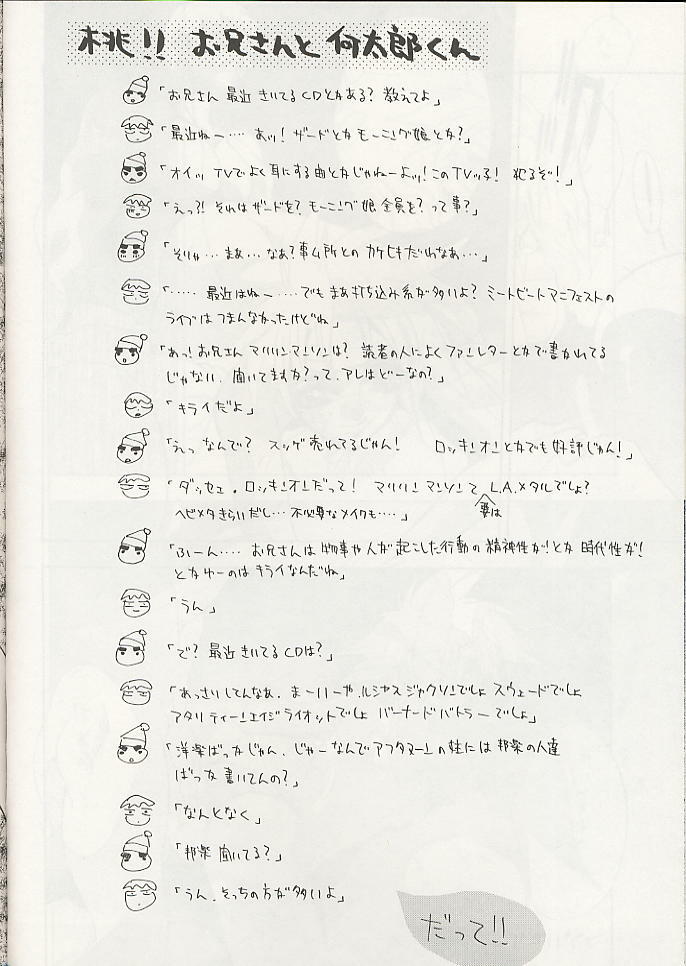 桃!! お兄さんと 何太郎くん
「お兄さん 最近 きいてるCDとかある? 教えてよ」
「最近ねー…… あッ! ザードとかモーニング娘とか?」
「オイッ TVでよく耳にする曲とかじゃねーよッ! このTVッ子! 犯るぞ!」
「えっ?! それはザードを? モーニング娘全員を? って事?」
「そりゃ… まあ… なあ? 事ム所との カケヒキだわなあ…」
「…… 最近はねー ……でも まあ打ち込み系が多いよ? ミートビートマニフェストの
ライブは つまんなかったけどね」
「あっ! お兄さん マリリンマンソンは? 読者の人によくファンレターとかで書かれてる
じゃない. 聞いてますか? って. アレはどーなの?」
「キライだよ」
「えっ なんで? スッゲ売れてるじゃん! ロッキンオンとかでも好評じゃん!」
「ダッセェ。ロッキンオンだって! マリリン マンソンて 要は L.A.メタルでしょ?
ヘビメタきらいだし… 不必要なメイクも…」
「ふーん…… お兄さんは 物事や人が起こした行動の 精神性が! とか 時代性が!
とかゆーのは キライなんだね」
「うん」
「で? 最近きいてるCDは?」
「あっさりしてんなあ. まーいーや. ルシャスジャクソンでしょ スウェードでしょ
アタリ ティーンエイジ ライオットでしょ バーナードバトラーでしょ」
「洋楽ばっかじゃん. じゃーなんでアフタヌーンの柱には 邦楽の人達
ばっか 書いてんの?」
「なんとなく」
「邦楽 聞いてる?」
「うん. そっちの方が多いよ」
だって!!